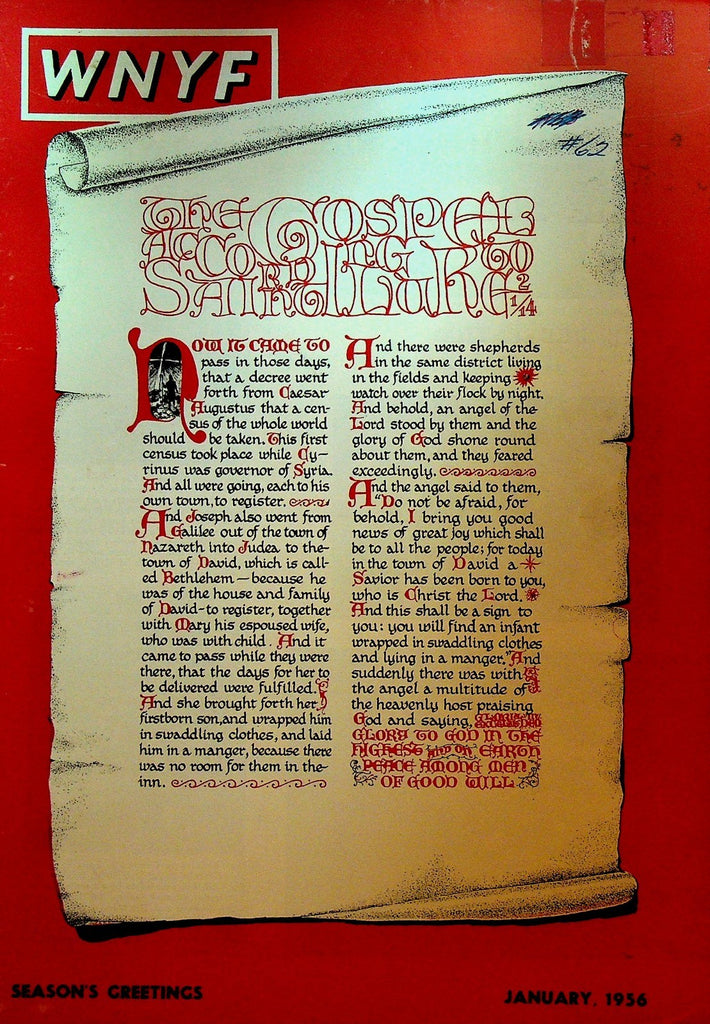 WNYF
#62
The Gospel
According to
Saint Luke 2
1/14
Now it came to
pass in those days,
that a decree went
forth from Caesar
Augustus that a cen-
sus of the whole world
should be taken. This first
census took place while Cy-
rinus was governor of Syria.
And all were going, each to his
own town, to register.
And Joseph also went from
Galilee out of the town of
Nazareth into Judea to the
town of David, which is call-
ed Bethlehem – because he
was of the house and family
of David – to register, together
with Mary his espoused wife,
who was with child. And it
came to pass while they were
there, that the days for her to
be delivered were fulfilled.
And she brought forth her
firstborn son, and wrapped him
in swaddling clothes, and laid
him in a manger, because there
was no room for them in the
inn.
And there were shepherds
in the same district living
in the fields and keeping
watch over their flock by night.
And behold, an angel of the
Lord stood by them and the
glory of God shone round
about them, and they feared
exceedingly.
And the angel said to them,
"Do not be afraid, for
behold, I bring you good
news of great joy which shall
be to all the people; for today
in the town of David a
Savior has been born to you,
who is Christ the Lord.
And this shall be a sign to
you: you will find an infant
wrapped in swaddling clothes
and lying in a manger." And
suddenly there was with
the angel a multitude of
the heavenly host praising
God and saying,
GLORY TO GOD IN THE
HIGHEST and on EARTH
PEACE AMONG MEN
OF GOOD WILL
SEASON'S GREETINGS
JANUARY, 1956